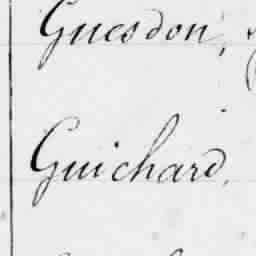 Guesdon,
Guichard.